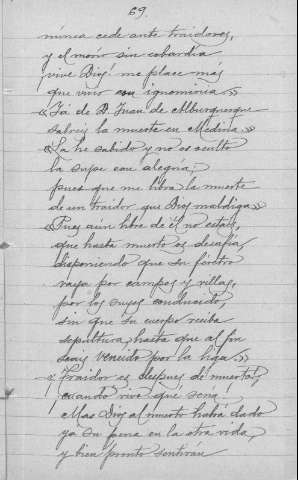 69.
nunca cede ante traidores,
y el morir sin cobardía
¡vive Dios! me place más
que vivir con ignominia»
«Ya de D. Juan de Alburquerque
sabréis la muerte en Medina»
«La he sabido y no es oculta
la supe con alegría;
pues que me libra la muerte
de un traidor que Dios maldiga»
«Pues aún libre de él no estáis,
que hasta muerto os desafía,
disponiendo que su féretro
vaya por campos y villas,
por los suyos conducido,
sin que su cuerpo reciba
sepultura, hasta que al fin
seais vencido por la liga»
«¡Traidor es después de muerto!
¡cuando vive que será!
Mas Dios al muerto habrá dado
ya su pena en la otra vida,
y bien pronto sentirán